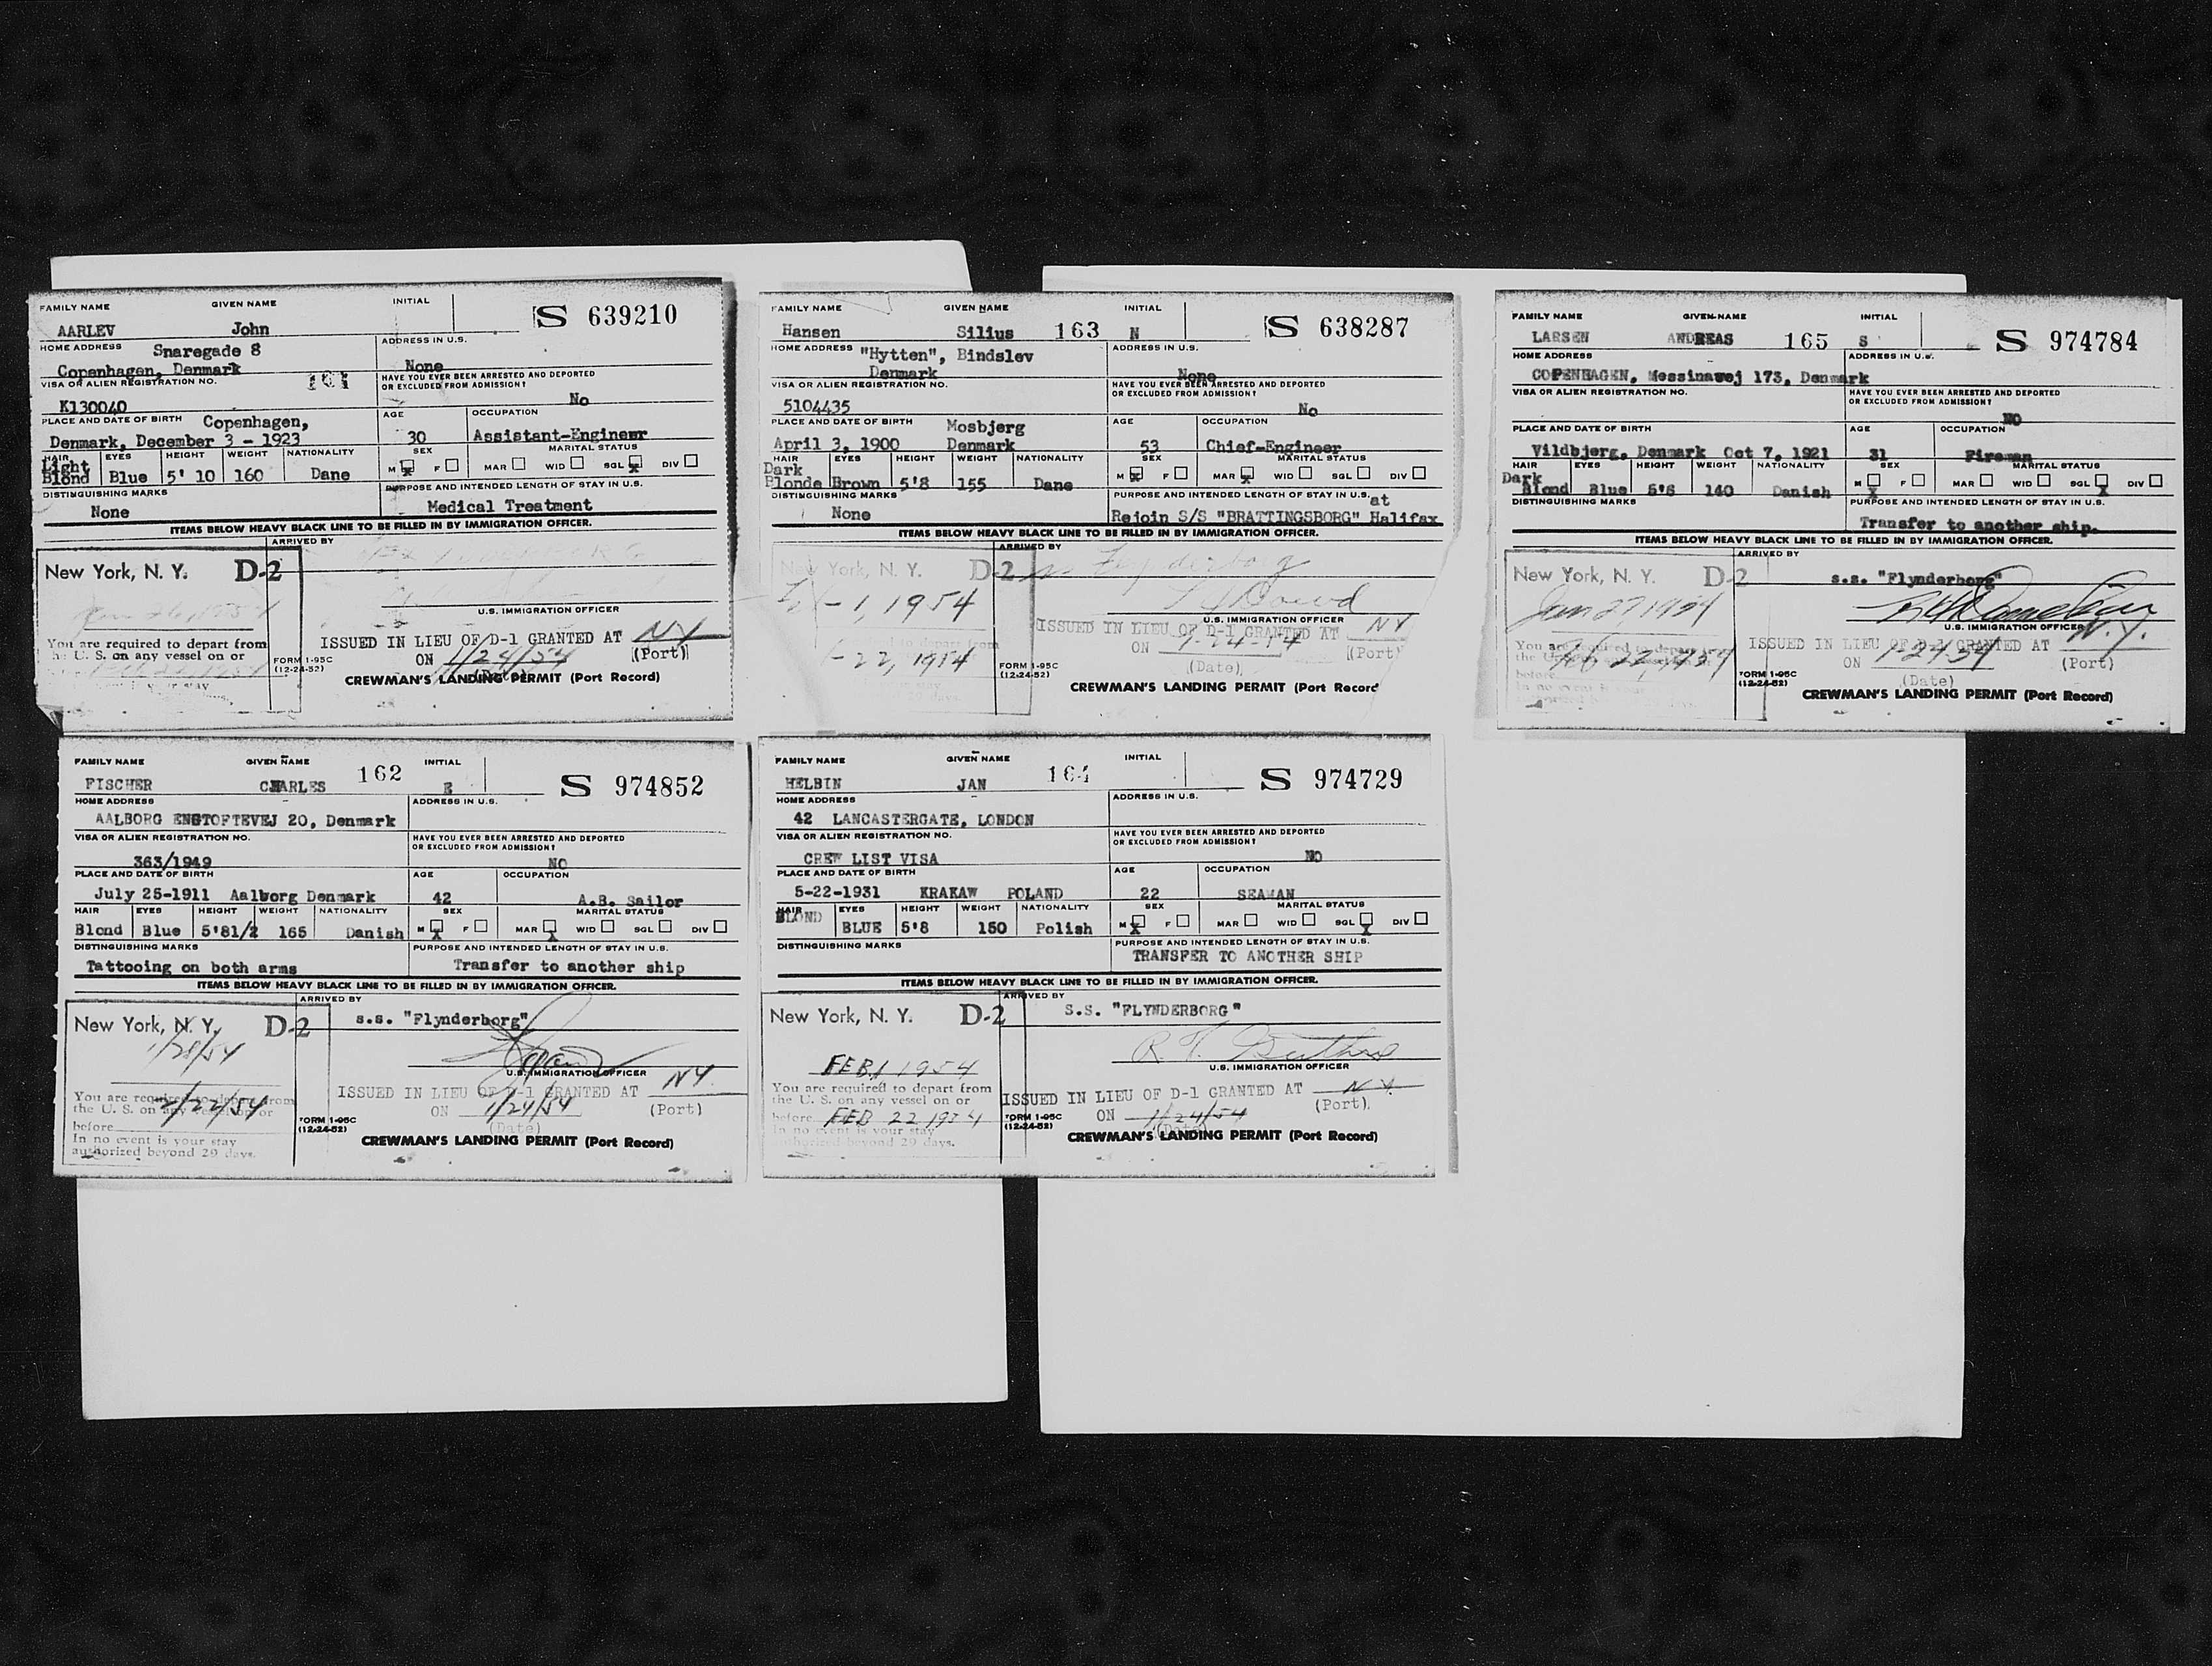 FAMILY NAME GIVEN NAME INITIAL
S 639210
AARLEV John
HOME ADDRESS Snaregade 8 ADDRESS IN U.S.
Copenhagen, Denmark None
VISA OR ALIEN REGISTRATION NO. HAVE YOU EVER BEEN ARRESTED AND DEPORTED
OR EXCLUDED FROM ADMISSION?
K130040 No
PLACE AND DATE OF BIRTH Copenhagen, AGE OCCUPATION
Denmark, December 3 - 1923 30 Assistant-Engineer
HAIR EYES HEIGHT WEIGHT NATIONALITY SEX MARITAL STATUS
Light Blond Blue 5' 10 160 Dane M F MAR WID SGL DIV
DISTINGUISHING MARKS PURPOSE AND INTENDED LENGTH OF STAY IN U.S.
None Medical Treatment
ITEMS BELOW HEAVY BLACK LINE TO BE FILLED IN BY IMMIGRATION OFFICER.
ARRIVED BY
New York, N. Y. D-2
U.S. IMMIGRATION OFFICER
You are required to depart from
the U. S. on any vessel on or
ISSUED IN LIEU OF D-1 GRANTED AT NY
ON 1/24/54 (Port)
FORM 1-95C
(12-24-52)
CREWMAN'S LANDING PERMIT (Port Record)
FAMILY NAME GIVEN NAME INITIAL
S 638287
Hansen Silius 163 N
HOME ADDRESS "Hytten", Bindslev ADDRESS IN U.S.
Denmark None
VISA OR ALIEN REGISTRATION NO. HAVE YOU EVER BEEN ARRESTED AND DEPORTED
OR EXCLUDED FROM ADMISSION?
5104435 No
PLACE AND DATE OF BIRTH Mosbjerg AGE OCCUPATION
April 3, 1900 Denmark 53 Chief-Engineer
HAIR EYES HEIGHT WEIGHT NATIONALITY SEX MARITAL STATUS
Dark Blonde Brown 5'8 155 Dane M F MAR WID SGL DIV
DISTINGUISHING MARKS PURPOSE AND INTENDED LENGTH OF STAY IN U.S. at
None Rejoin S/S "BRATTINGSBORG" Halifax
ITEMS BELOW HEAVY BLACK LINE TO BE FILLED IN BY IMMIGRATION OFFICER.
ARRIVED BY Flynderborg
New York, N. Y. D-2
1, 1954
U.S. IMMIGRATION OFFICER
ISSUED IN LIEU OF D-1 GRANTED AT NY
ON 1-24-54 (Port)
22, 1954
(Date)
FORM 1-95C
(12-24-52)
CREWMAN'S LANDING PERMIT (Port Record
FAMILY NAME GIVEN NAME INITIAL
S 974784
LARSEN ANDREAS 165 S
HOME ADDRESS ADDRESS IN U.S.
COPENHAGEN, Messinavej 173, Denmark
VISA OR ALIEN REGISTRATION NO. HAVE YOU EVER BEEN ARRESTED AND DEPORTED
OR EXCLUDED FROM ADMISSION?
NO
PLACE AND DATE OF BIRTH AGE OCCUPATION
Vildbjerg, Denmark Oct 7, 1921 31 Fireman
HAIR EYES HEIGHT WEIGHT NATIONALITY SEX MARITAL STATUS
Dark Blond Blue 5'8 140 Danish M F MAR WID SGL DIV
DISTINGUISHING MARKS PURPOSE AND INTENDED LENGTH OF STAY IN U.S.
Transfer to another ship.
ITEMS BELOW HEAVY BLACK LINE TO BE FILLED IN BY IMMIGRATION OFFICER.
ARRIVED BY
New York, N. Y. D-2 s.s. "Flynderborg"
Jan 27, 1954
U.S. IMMIGRATION OFFICER
ISSUED IN LIEU OF D-1 GRANTED AT N.Y.
Feb 22, 1954
(Port)
(Date)
FORM 1-95C
(12-24-52)
CREWMAN'S LANDING PERMIT (Port Record)
FAMILY NAME GIVEN NAME 162 INITIAL
S 974852
FISCHER CHARLES E
HOME ADDRESS ADDRESS IN U.S.
AALBORG ENGTOFTEVEJ 20, Denmark
VISA OR ALIEN REGISTRATION NO. HAVE YOU EVER BEEN ARRESTED AND DEPORTED
OR EXCLUDED FROM ADMISSION?
363/1949 NO
PLACE AND DATE OF BIRTH AGE OCCUPATION
July 25-1911 Aalborg Denmark 42 A.B. Sailor
HAIR EYES HEIGHT WEIGHT NATIONALITY SEX MARITAL STATUS
Blond Blue 5'81/2 165 Danish M F MAR WID SGL DIV
DISTINGUISHING MARKS PURPOSE AND INTENDED LENGTH OF STAY IN U.S.
Tattooing on both arms Transfer to another ship
ITEMS BELOW HEAVY BLACK LINE TO BE FILLED IN BY IMMIGRATION OFFICER.
ARRIVED BY
New York, N. Y. D-2 s.s. "Flynderborg"
1/28/54
U.S. IMMIGRATION OFFICER
You are required to depart from
the U. S. on any vessel on or
before
In no event is your stay
authorized beyond 29 days.
ISSUED IN LIEU OF D-1 GRANTED AT NY
ON 1/24/54 (Port)
(Date)
FORM 1-95C
(12-24-52)
CREWMAN'S LANDING PERMIT (Port Record)
FAMILY NAME GIVEN NAME 164 INITIAL
S 974729
HELBIN JAN
HOME ADDRESS ADDRESS IN U.S.
42 LANCASTERGATE, LONDON
VISA OR ALIEN REGISTRATION NO. HAVE YOU EVER BEEN ARRESTED AND DEPORTED
OR EXCLUDED FROM ADMISSION?
CREW LIST VISA NO
PLACE AND DATE OF BIRTH AGE OCCUPATION
5-22-1931 KRAKAW POLAND 22 SEAMAN
HAIR EYES HEIGHT WEIGHT NATIONALITY SEX MARITAL STATUS
BLOND BLUE 5'8 150 Polish M F MAR WID SGL DIV
DISTINGUISHING MARKS PURPOSE AND INTENDED LENGTH OF STAY IN U.S.
TRANSFER TO ANOTHER SHIP
ITEMS BELOW HEAVY BLACK LINE TO BE FILLED IN BY IMMIGRATION OFFICER.
ARRIVED BY
New York, N. Y. D-2 S.S. "FLYNDERBORG"
FEB 1 1954
U.S. IMMIGRATION OFFICER
You are required to depart from
the U. S. on any vessel on or
before FEB 22 1954
In no event is your stay
authorized beyond 29 days.
ISSUED IN LIEU OF D-1 GRANTED AT N.Y.
ON 1/24/54 (Port)
(Date)
FORM 1-95C
(12-24-52)
CREWMAN'S LANDING PERMIT (Port Record)